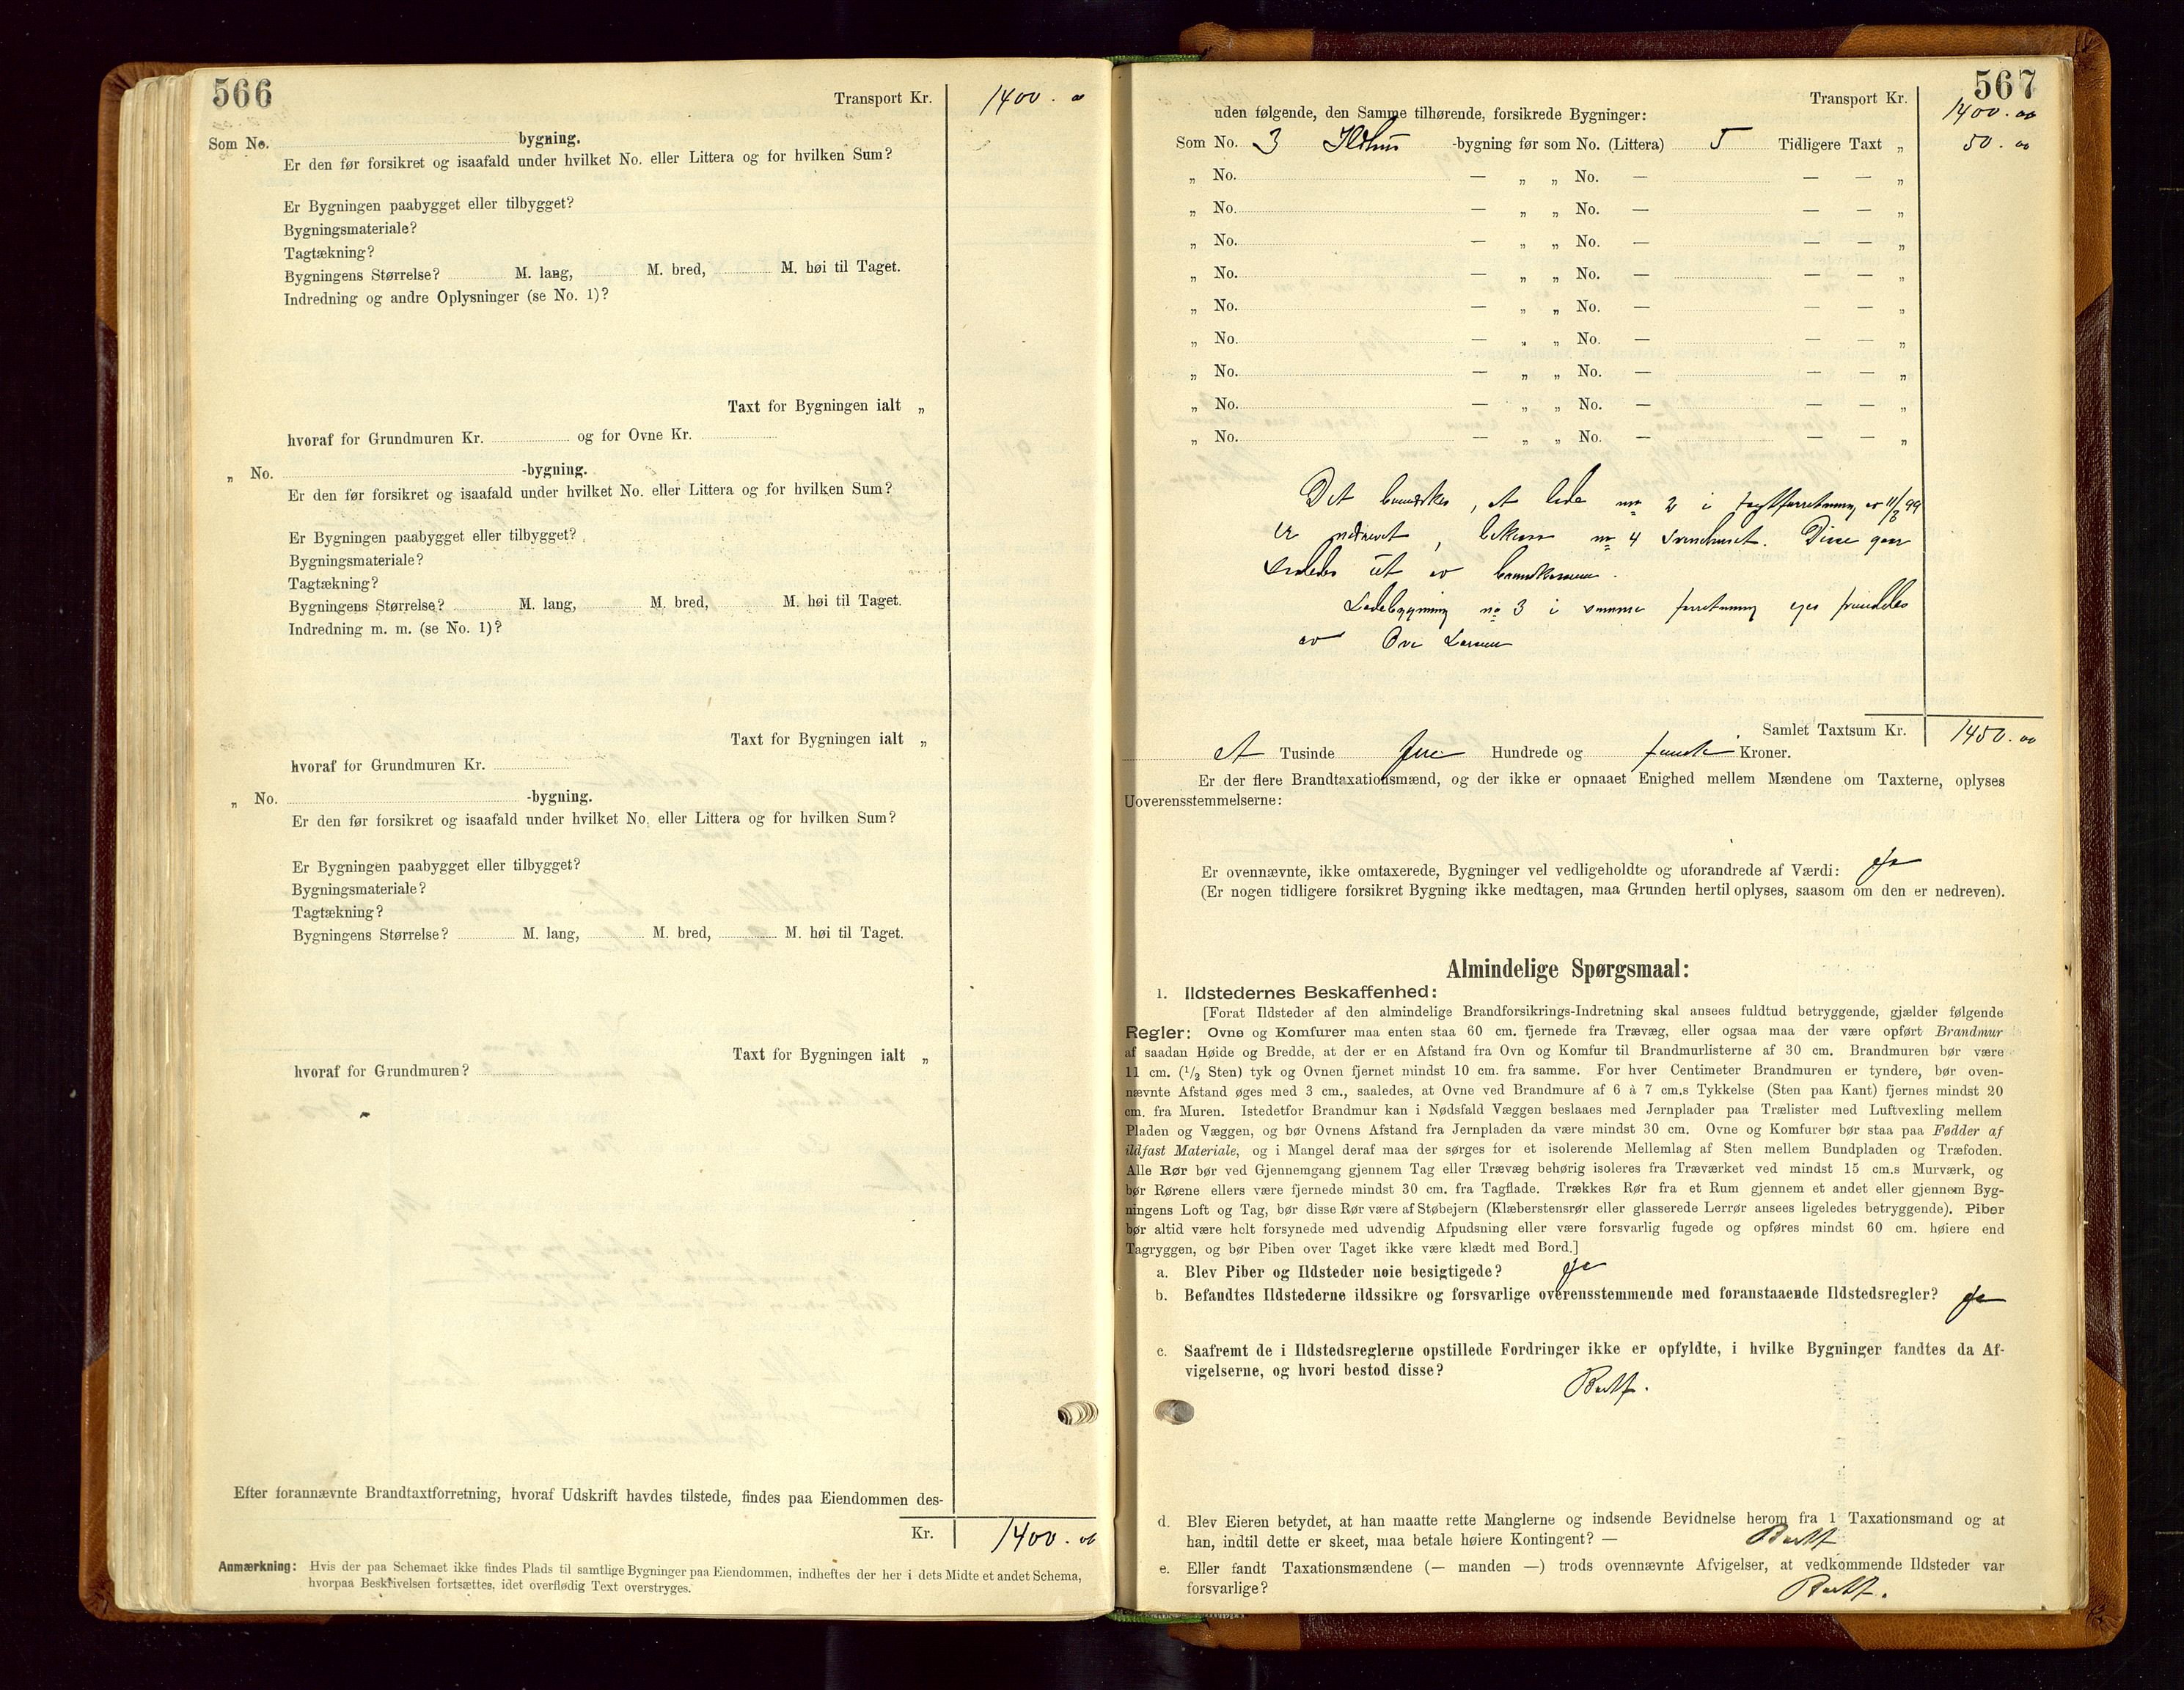 566
Transport Kr. 1400.
Som No. bygning.
Er den før forsikret og isaafald under hvilket No. eller Littera og for hvilken Sum?
Er Bygningen paabygget eller tilbygget?
Bygningsmateriale?
Tagtækning?
Bygningens Størrelse? M. lang, M. bred, M. høi til Taget.
Indredning og andre Oplysninger (se No. 1)?
Taxt for Bygningen ialt „
hvoraf for Grundmuren Kr. og for Ovne Kr.
„ No. -bygning.
Er den før forsikret og isaafald under hvilket No. eller Littera og for hvilken Sum?
Er Bygningen paabygget eller tilbygget?
Bygningsmateriale?
Tagtækning?
Bygningens Størrelse? M. lang, M. bred, M. høi til Taget.
Indredning m. m. (se No. 1)?
Taxt for Bygningen ialt „
hvoraf for Grundmuren Kr.
„ No. -bygning.
Er den før forsikret og isaafald under hvilket No. eller Littera og for hvilken Sum?
Er Bygningen paabygget eller tilbygget?
Bygningsmateriale?
Tagtækning?
Bygningens Størrelse? M. lang, M. bred, M. høi til Taget.
Taxt for Bygningen ialt „
hvoraf for Grundmuren?
Efter forannævnte Brandtaxtforretning, hvoraf Udskrift havdes tilstede, findes paa Eiendommen des-
Kr. 1400.
Anmærkning: Hvis der paa Schemaet ikke findes Plads til samtlige Bygninger paa Eiendommen, indheftes der her i dets Midte et andet Schema,
hvorpaa Beskrivelsen fortsættes, idet overflødig Text overstryges.
567
Transport Kr. 1400.00
uden følgende, den Samme tilhørende, forsikrede Bygninger:
Som No. 3 Ildhus -bygning før som No. (Littera) 5 Tidligere Taxt „ 50.00
„ No. — „ „ No. — — — „
„ No. — „ „ No. — — — „
„ No. — „ „ No. — — — „
„ No. — „ „ No. — — — „
„ No. — „ „ No. — — — „
„ No. — „ „ No. — — — „
„ No. — „ „ No. — — — „
„ No. — „ „ No. — — — „
„ No. — „ „ No. — — — „
Det bemærkes, at lade no 2 i taxtforretning av 11/8 99
er nedrevet, no 4 Svinehuset. Disse gaar
saaledes ut av brandkassen.
Ladebygning no 3 i samme forretning eges fremdeles
av Ove Larsen
Samlet Taxtsum Kr. 1450.00
Et Tusinde fire Hundrede og femti Kroner.
Er der flere Brandtaxationsmænd, og der ikke er opnaaet Enighed mellem Mændene om Taxterne, oplyses
Uoverensstemmelserne:
Er ovennævnte, ikke omtaxerede, Bygninger vel vedligeholdte og uforandrede af Værdi: Ja
(Er nogen tidligere forsikret Bygning ikke medtagen, maa Grunden hertil oplyses, saasom om den er nedreven).
Almindelige Spørgsmaal:
1. Ildstedernes Beskaffenhed:
[Forat Ildsteder af den almindelige Brandforsikrings-Indretning skal ansees fuldtud betryggende, gjælder følgende
Regler: Ovne og Komfurer maa enten staa 60 cm. fjernede fra Trævæg, eller ogsaa maa der være opført Brandmur
af saadan Høide og Bredde, at der er en Afstand fra Ovn og Komfur til Brandmurlisterne af 30 cm. Brandmuren bør være
11 cm. (1/2 Sten) tyk og Ovnen fjernet mindst 10 cm. fra samme. For hver Centimeter Brandmuren er tyndere, bør oven-
nævnte Afstand øges med 3 cm., saaledes, at Ovne ved Brandmure af 6 à 7 cm.s Tykkelse (Sten paa Kant) fjernes mindst 20
cm. fra Muren. Istedetfor Brandmur kan i Nødsfald Væggen beslaaes med Jernplader paa Trælister med Luftvexling mellem
Pladen og Væggen, og bør Ovnens Afstand fra Jernpladen da være mindst 30 cm. Ovne og Komfurer bør staa paa Fødder af
ildfast Materiale, og i Mangel deraf maa der sørges for et isolerende Mellemlag af Sten mellem Bundpladen og Træfoden.
Alle Rør bør ved Gjennemgang gjennem Tag eller Trævæg behørig isoleres fra Træværket ved mindst 15 cm.s Murværk, og
bør Rørene ellers være fjernede mindst 30 cm. fra Tagflade. Trækkes Rør fra et Rum gjennem et andet eller gjennem Byg-
ningens Loft og Tag, bør disse Rør være af Støbejern (Klæberstensrør eller glasserede Lerrør ansees ligeledes betryggende). Piber
bør altid være helt forsynede med udvendig Afpudsning eller være forsvarlig fugede og opføres mindst 60 cm. høiere end
Tagryggen, og bør Piben over Taget ikke være klædt med Bord.]
a. Blev Piber og Ildsteder nøie besigtigede? Ja
b. Befandtes Ildstederne ildssikre og forsvarlige overensstemmende med foranstaaende Ildstedsregler? Ja
c. Saafremt de i Ildstedsreglerne opstillede Fordringer ikke er opfyldte, i hvilke Bygninger fandtes da Af-
vigelserne, og hvori bestod disse?
Bortf.
d. Blev Eieren betydet, at han maatte rette Manglerne og indsende Bevidnelse herom fra 1 Taxationsmand og at
han, indtil dette er skeet, maa betale høiere Kontingent? — Bortf
e. Eller fandt Taxationsmændene (— manden —) trods ovennævnte Afvigelser, at vedkommende Ildsteder var
forsvarlige? Bortf.